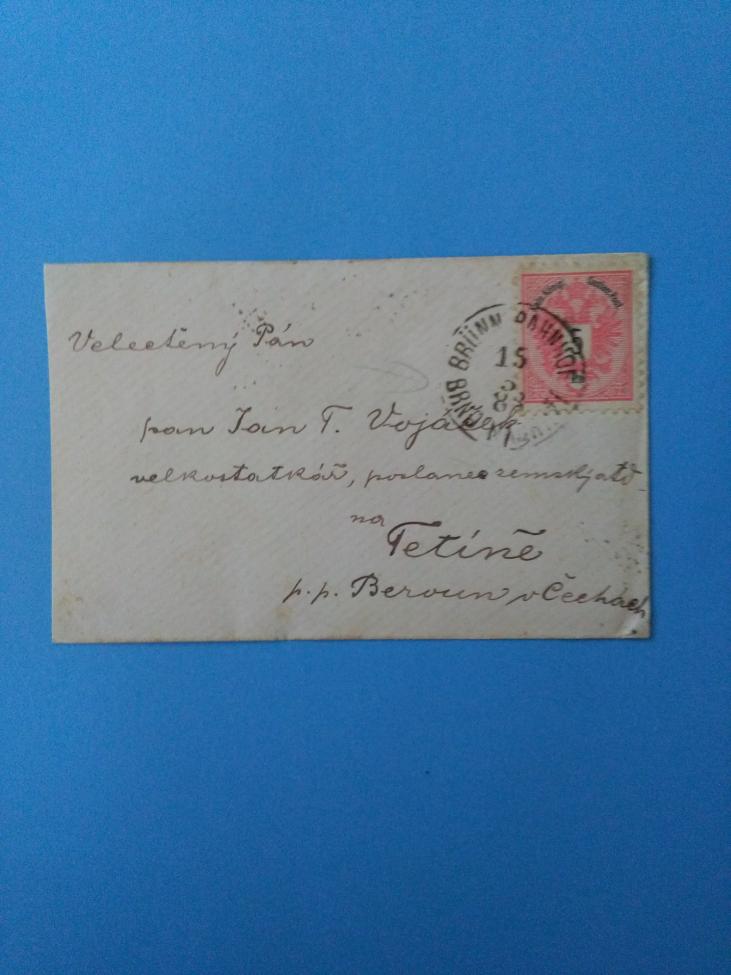 Velectěný Pán
pan Jan T. Vojáček
velkostatkář, poslanec zemský atd
na
Tetíně
p. p. Beroun v Čechách
BRÜNN BAHNHOF
15
8
5